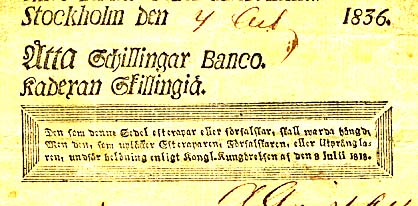 Stockholm den 4 Oct 1836.
Åtta Schillingar Banco.
Kaderan Skillingiä.
Den som denne Sedel efterapar eller förfalskar, skall warda hängd;
Men den, som uptäcker Efteraparen, Förfalskaren, eller Utprångla-
ren, undfår belöning enligt Kongl. Kungörelsen af den 8 Julii 1818.